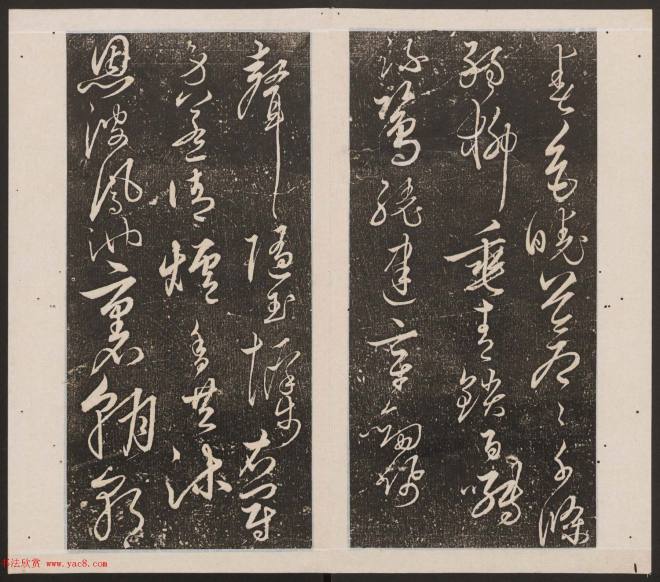 春色曉蒼〻千條
弱柳垂青鎖百囀
流鶯繞建章劍佩
聲隨玉墀步衣冠
身惹御爐香共沐
恩波鳳池裏朝朝
书法欣赏 www.yac8.com